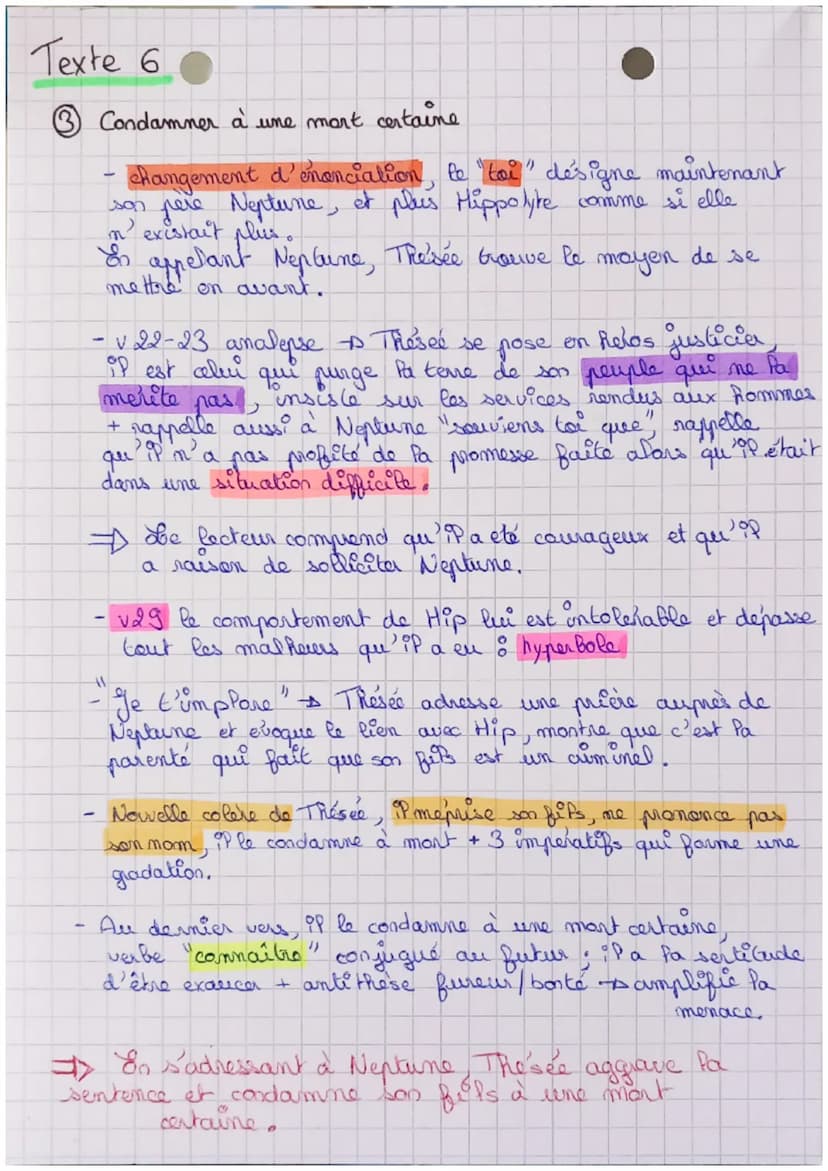 Texte 6
③ Condamner à une mort certaine
- changement d'énonciation, le "toi" désigne maintenant
son père Neptune, et plus Hippolyte comme si elle
n'existait plus.
En appelant Neptune, Thésée trouve le moyen de se
mettre en avant.
- v 22-23 analepse → Thésée se pose en héros justicier,
il est celui qui purge la terre de son peuple qui ne la
mérite pas, insiste sur les services rendus aux hommes
+ rappelle aussi à Neptune "souviens toi que", rappelle
qu'il n'a pas profité de la promesse faite alors qu'il était
dans une situation difficile.
⇒ Le lecteur comprend qu'il a été courageux et qu'il
a raison de solliciter Neptune.
- v29 le comportement de Hip lui est intolérable et dépasse
tout les malheurs qu'il a eu : hyperbole
- "Je t'implore" → Thésée adresse une prière auprès de
Neptune et évoque le lien avec Hip, montre que c'est la
parenté qui fait que son fils est un criminel.
- Nouvelle colère de Thésée, il méprise son fils, ne prononce pas
son nom, il le condamne à mort + 3 impératifs qui forme une
gradation.
- Au dernier vers, il le condamne à une mort certaine,
verbe "connaître" conjugué au futur : il a la sertitude
d'être exaucer + antithèse fureur/bonté → amplifie la
menace.
⇒ En s'adressant à Neptune, Thésée aggrave la
sentence et condamne son fils à une mort
certaine.